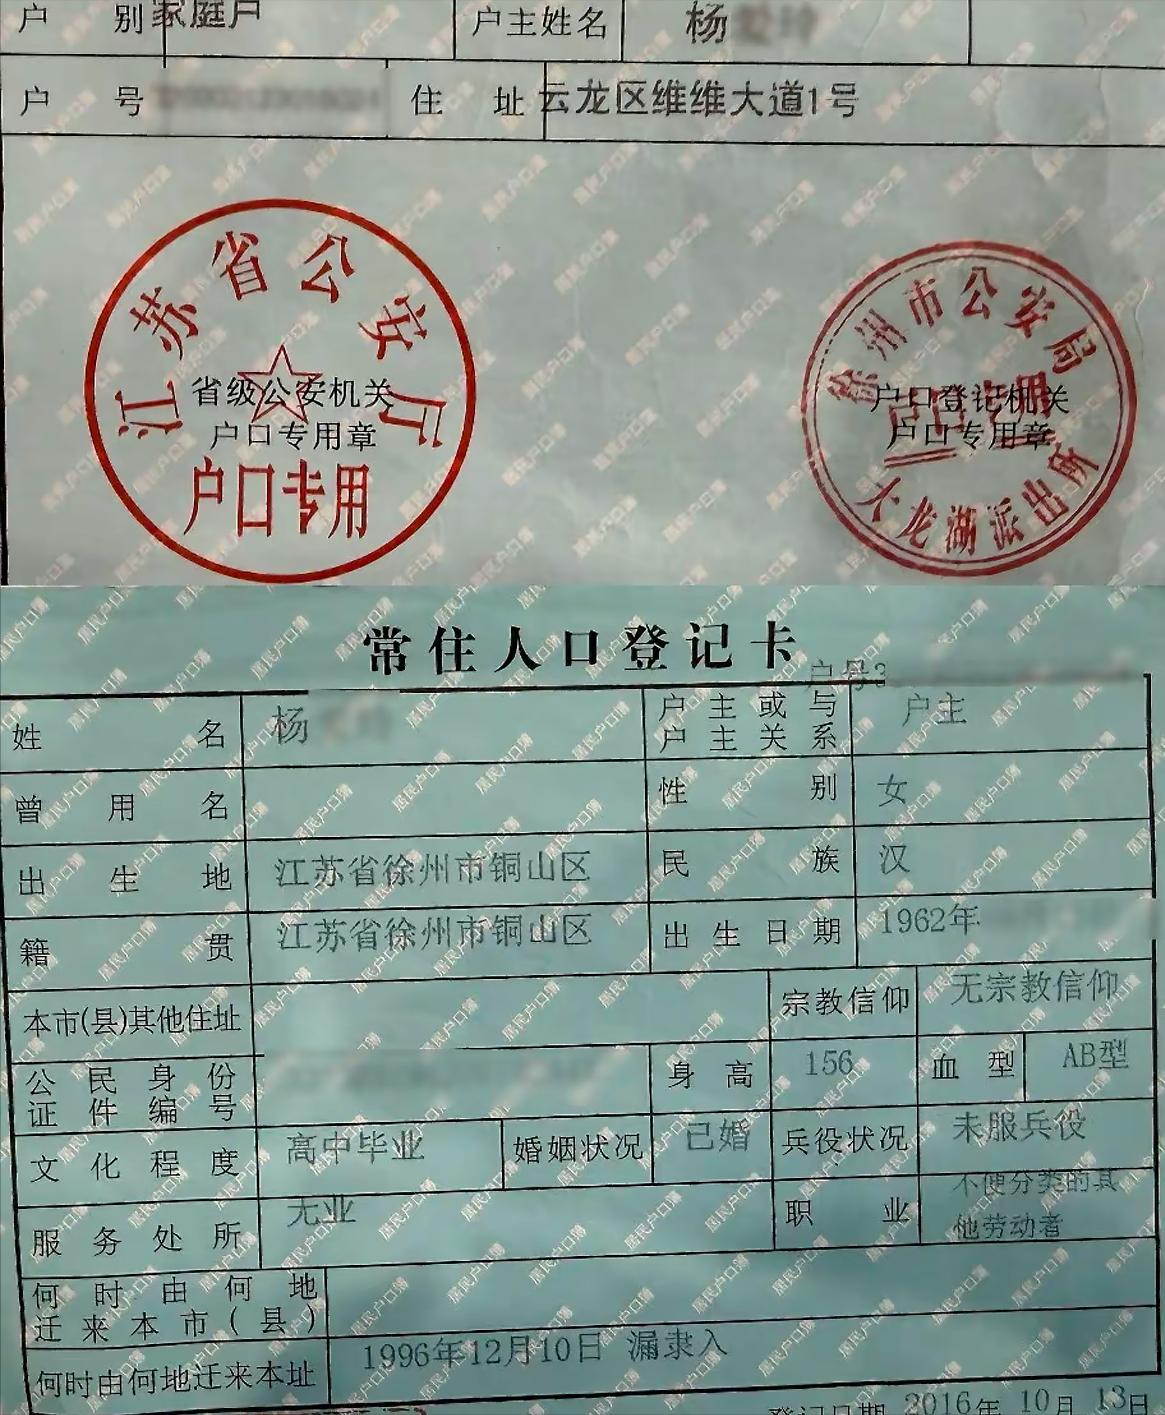 户 别 家庭户 户主姓名 杨
户 号 住 址 云龙区维维大道1号
江苏省公安厅
省级公安机关
户口专用章
户口专用
徐州市公安局
户口登记机关
户口专用章
户口专用
大龙湖派出所
常住人口登记卡
户号3
姓 名 杨 户主或与户主关系 户主
曾用名 性别 女
出生地 江苏省徐州市铜山区 民族 汉
籍贯 江苏省徐州市铜山区 出生日期 1962年
本市(县)其他住址 宗教信仰 无宗教信仰
公民身份证件编号 身高 156 血型 AB型
文化程度 高中毕业 婚姻状况 已婚 兵役状况 未服兵役
服务处所 无业 职业 不便分类的其他劳动者
何时由何地迁来本市(县)
何时由何地迁来本址 1996年12月10日 漏隶入
登记日期 2016年 10月 13日